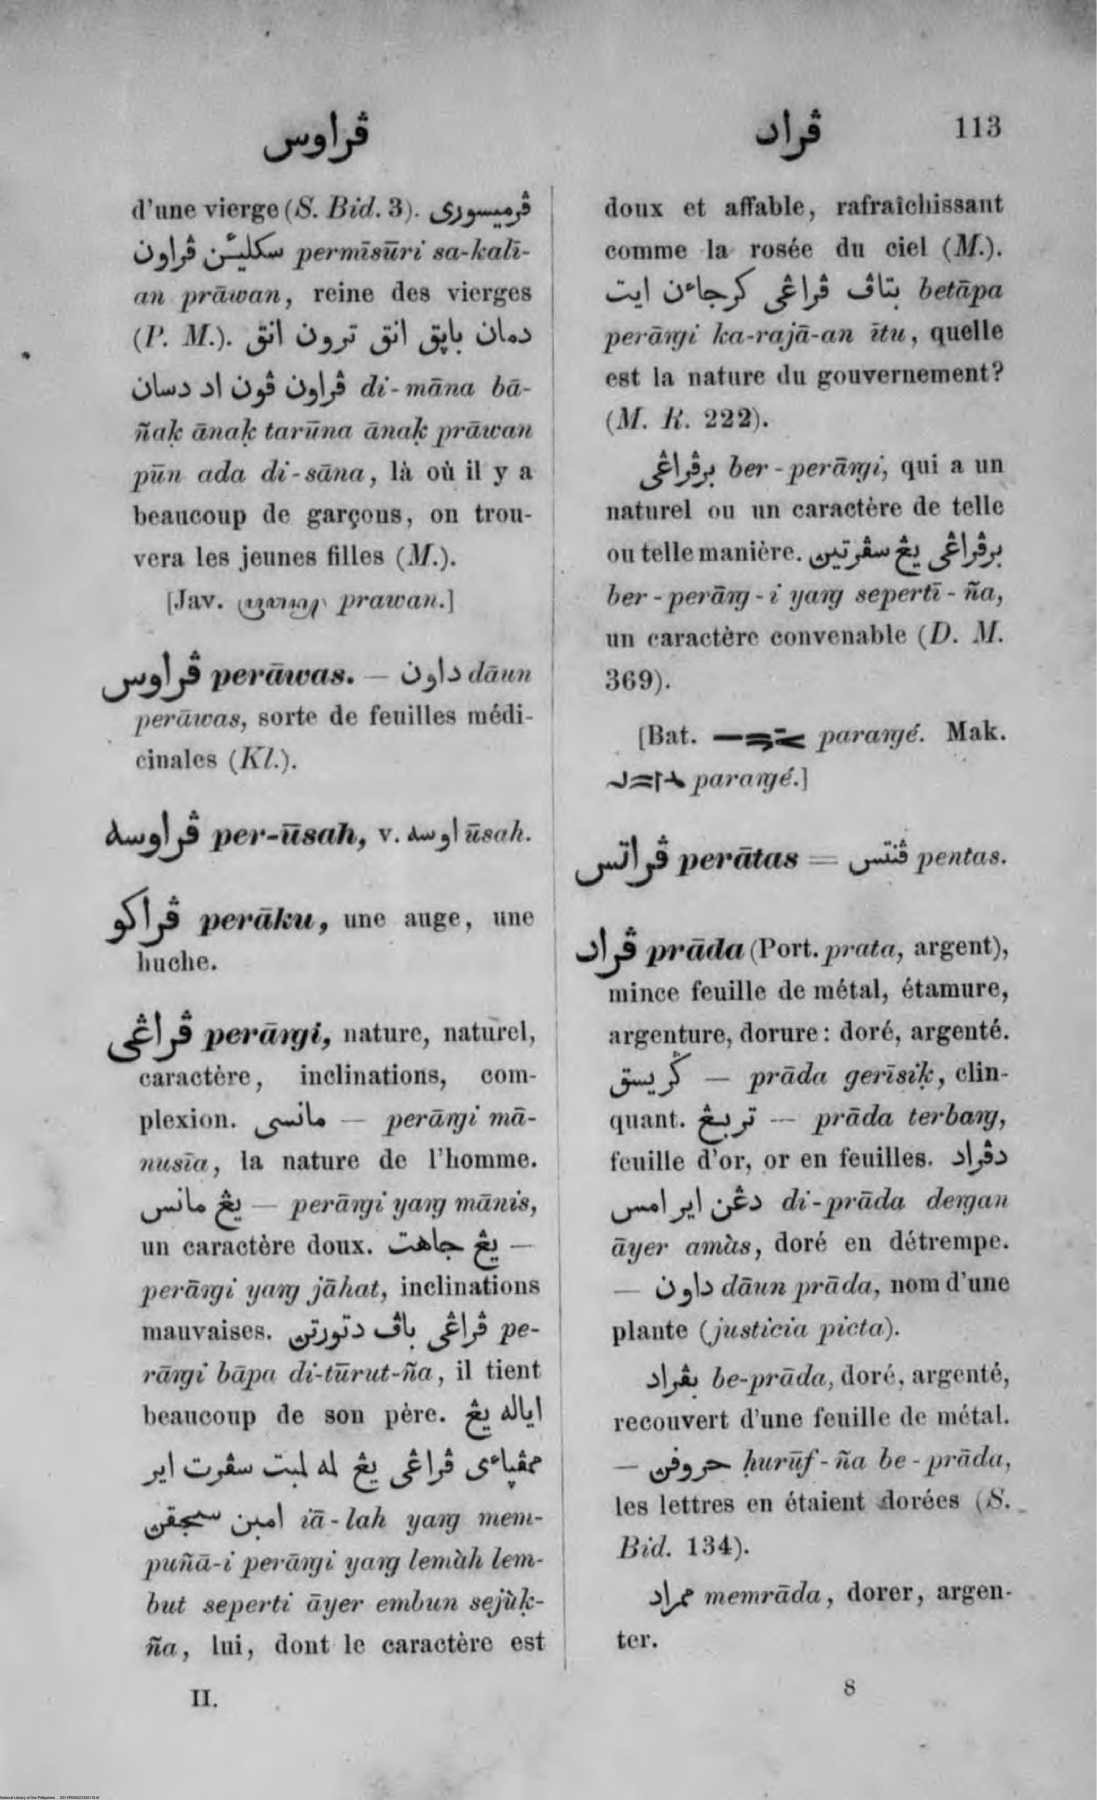 ڤراوس
ڤراد 113
d'une vierge (S. Bid. 3). ڤرميسوري
سكليئن ڤراون permīsūri sa-kalī-
an prāwan, reine des vierges
(P. M.). دمان باپق انق ترون انق
ڤراون ڤون اد دسان di-māna bā-
ñaḳ ānaḳ tarūna ānaḳ prāwan
pūn ada di-sāna, là où il y a
beaucoup de garçons, on trou-
vera les jeunes filles (M.).
[Jav. prawan.]
ڤراوس perāwas. — داون dāun
perāwas, sorte de feuilles médi-
cinales (Kl.).
ڤراوسه per-ūsah, v. اوسه ūsah.
ڤراكو perāku, une auge, une
huche.
ڤراڠي perāngi, nature, naturel,
caractère, inclinations, com-
plexion. مانسي — perāngi mā-
nusīa, la nature de l'homme.
يڠ مانس — perāngi yang mānis,
un caractère doux. يڠ جاهت —
perāngi yang jāhat, inclinations
mauvaises. ڤراڠي باڤ دتورتن pe-
rāngi bāpa di-tūrut-ña, il tient
beaucoup de son père. اياله يڠ
ممڤپاءي ڤراڠي يڠ لمه لمبت سڤرت اير
امبن سجقن iā-lah yang mem-
puñā-i perāngi yang lemàh lem-
but seperti āyer embun sejùḳ-
ña, lui, dont le caractère est
II.
doux et affable, rafraîchissant
comme la rosée du ciel (M.).
بتاڤ ڤراڠي كرجاءن ايت betāpa
perāngi ka-rajā-an ītu, quelle
est la nature du gouvernement?
(M. R. 222).
برڤراڠي ber-perāngi, qui a un
naturel ou un caractère de telle
ou telle manière. برڤراڠي يڠ سڤرتين
ber-perāng-i yang sepertī-ña,
un caractère convenable (D. M.
369).
[Bat. parangé. Mak.
parangé.]
ڤراتس perātas = ڤنتس pentas.
ڤراد prāda (Port. prata, argent),
mince feuille de métal, étamure,
argenture, dorure: doré, argenté.
ݢريسق — prāda gerīsiḳ, clin-
quant. تربڠ — prāda terbang,
feuille d'or, or en feuilles. دڤراد
دڠن اير امس di-prāda dengan
āyer amàs, doré en détrempe.
— داون dāun prāda, nom d'une
plante (justicia picta).
بڤراد be-prāda, doré, argenté,
recouvert d'une feuille de métal.
— حروفن ḥurūf-ña be-prāda,
les lettres en étaient dorées (S.
Bid. 134).
ممراد memrāda, dorer, argen-
ter.
8